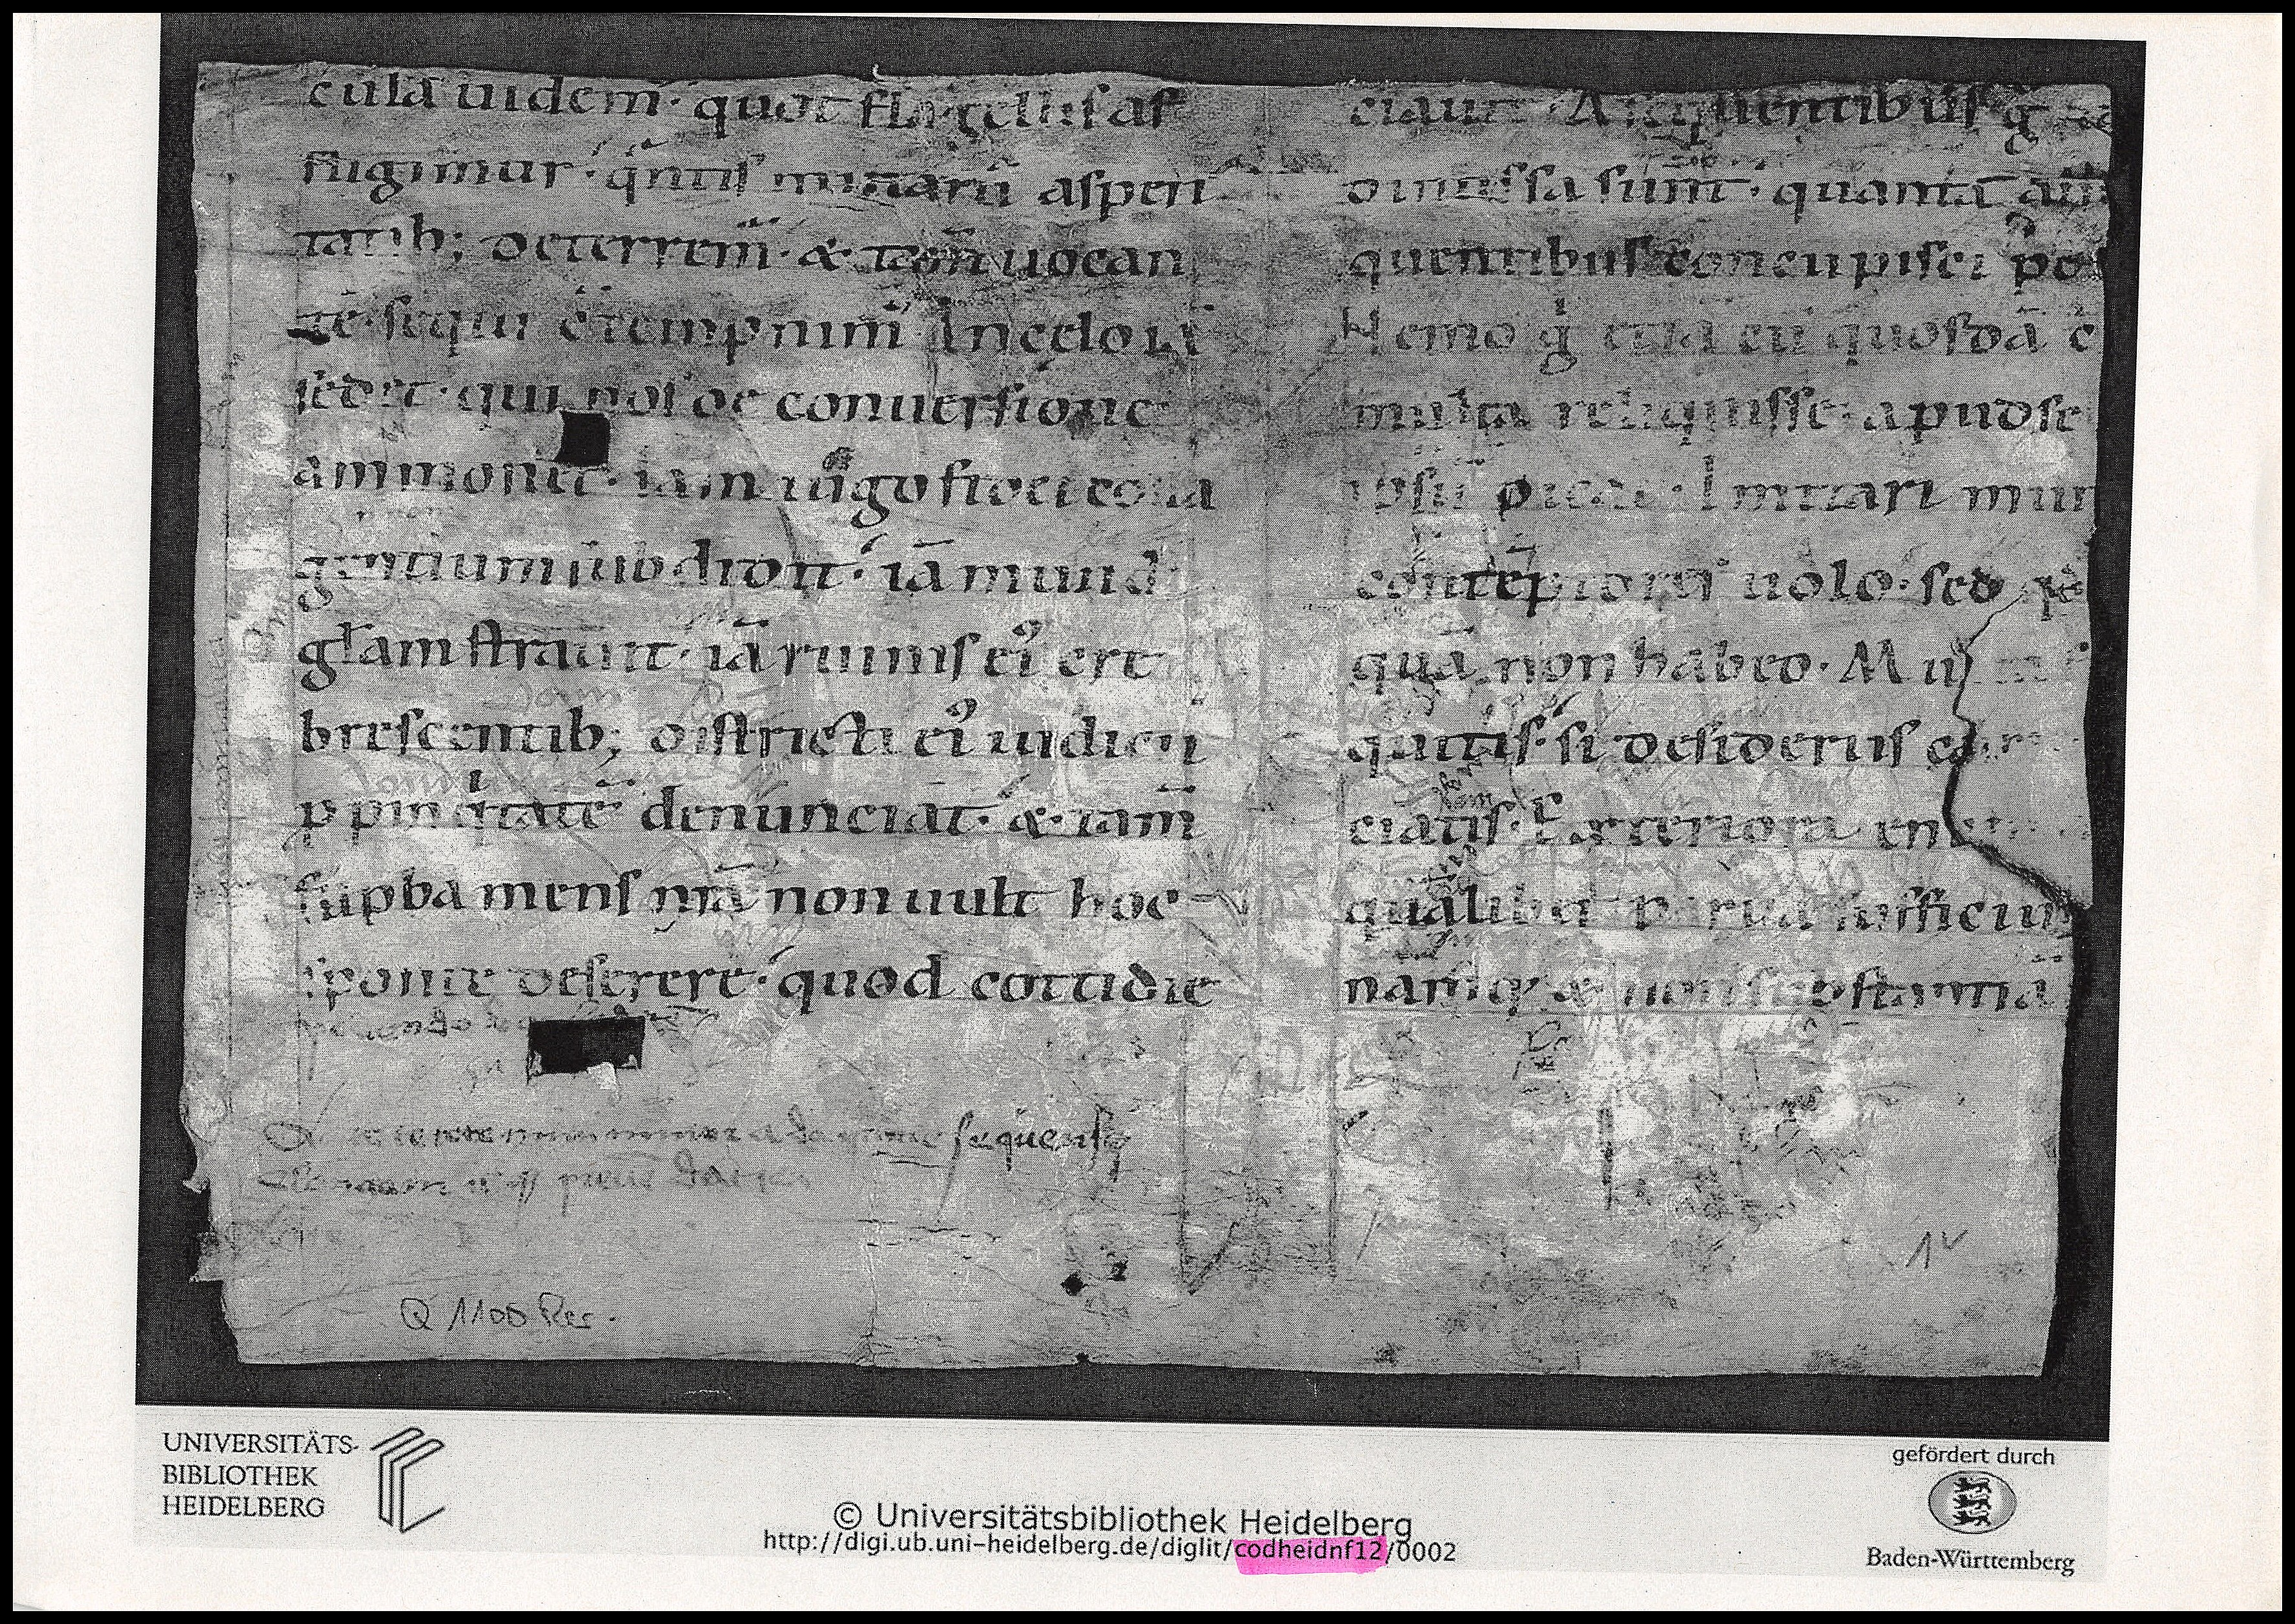 cula uidem̄· quot flagellis af
fligimur· q̄ntis minarū asperi
tatib; deterrem̄· & tam̄ uocan
tē sequi cōtempnim̄ In celo iā
sedet· qui nos de conuersione
ammonet· iam iugo fidei colla
gentium subdidit· iā mundi
gl̄am strauit· iā ruinis ei᷒ cre
brescentib; districti ei᷒ iudicii
ꝓpinq̇tatē denunciat· & tam̄
supba mens nr̄a non uult hoc
sponte deserere· quod cottidie
sequens
Q 1100 Res.
ciauit A sequentibus g̊
dimissa sunt· quanta a
quentibus concupisci po
Nemo g̊ etiā cū quosdā c
multa reliquisse· apud se
ipsū dicat· Imitari mun
contēptores uolo· sed
quā non habeo· M
quitis· si desideriis
ciatis· Exteriora en
qualibet parua sufficiu
namq; & non substantiā
1v
UNIVERSITÄTS-
BIBLIOTHEK
HEIDELBERG
© Universitätsbibliothek Heidelberg
http://digi.ub.uni-heidelberg.de/diglit/codheidnf12/0002
gefördert durch
Baden-Württemberg